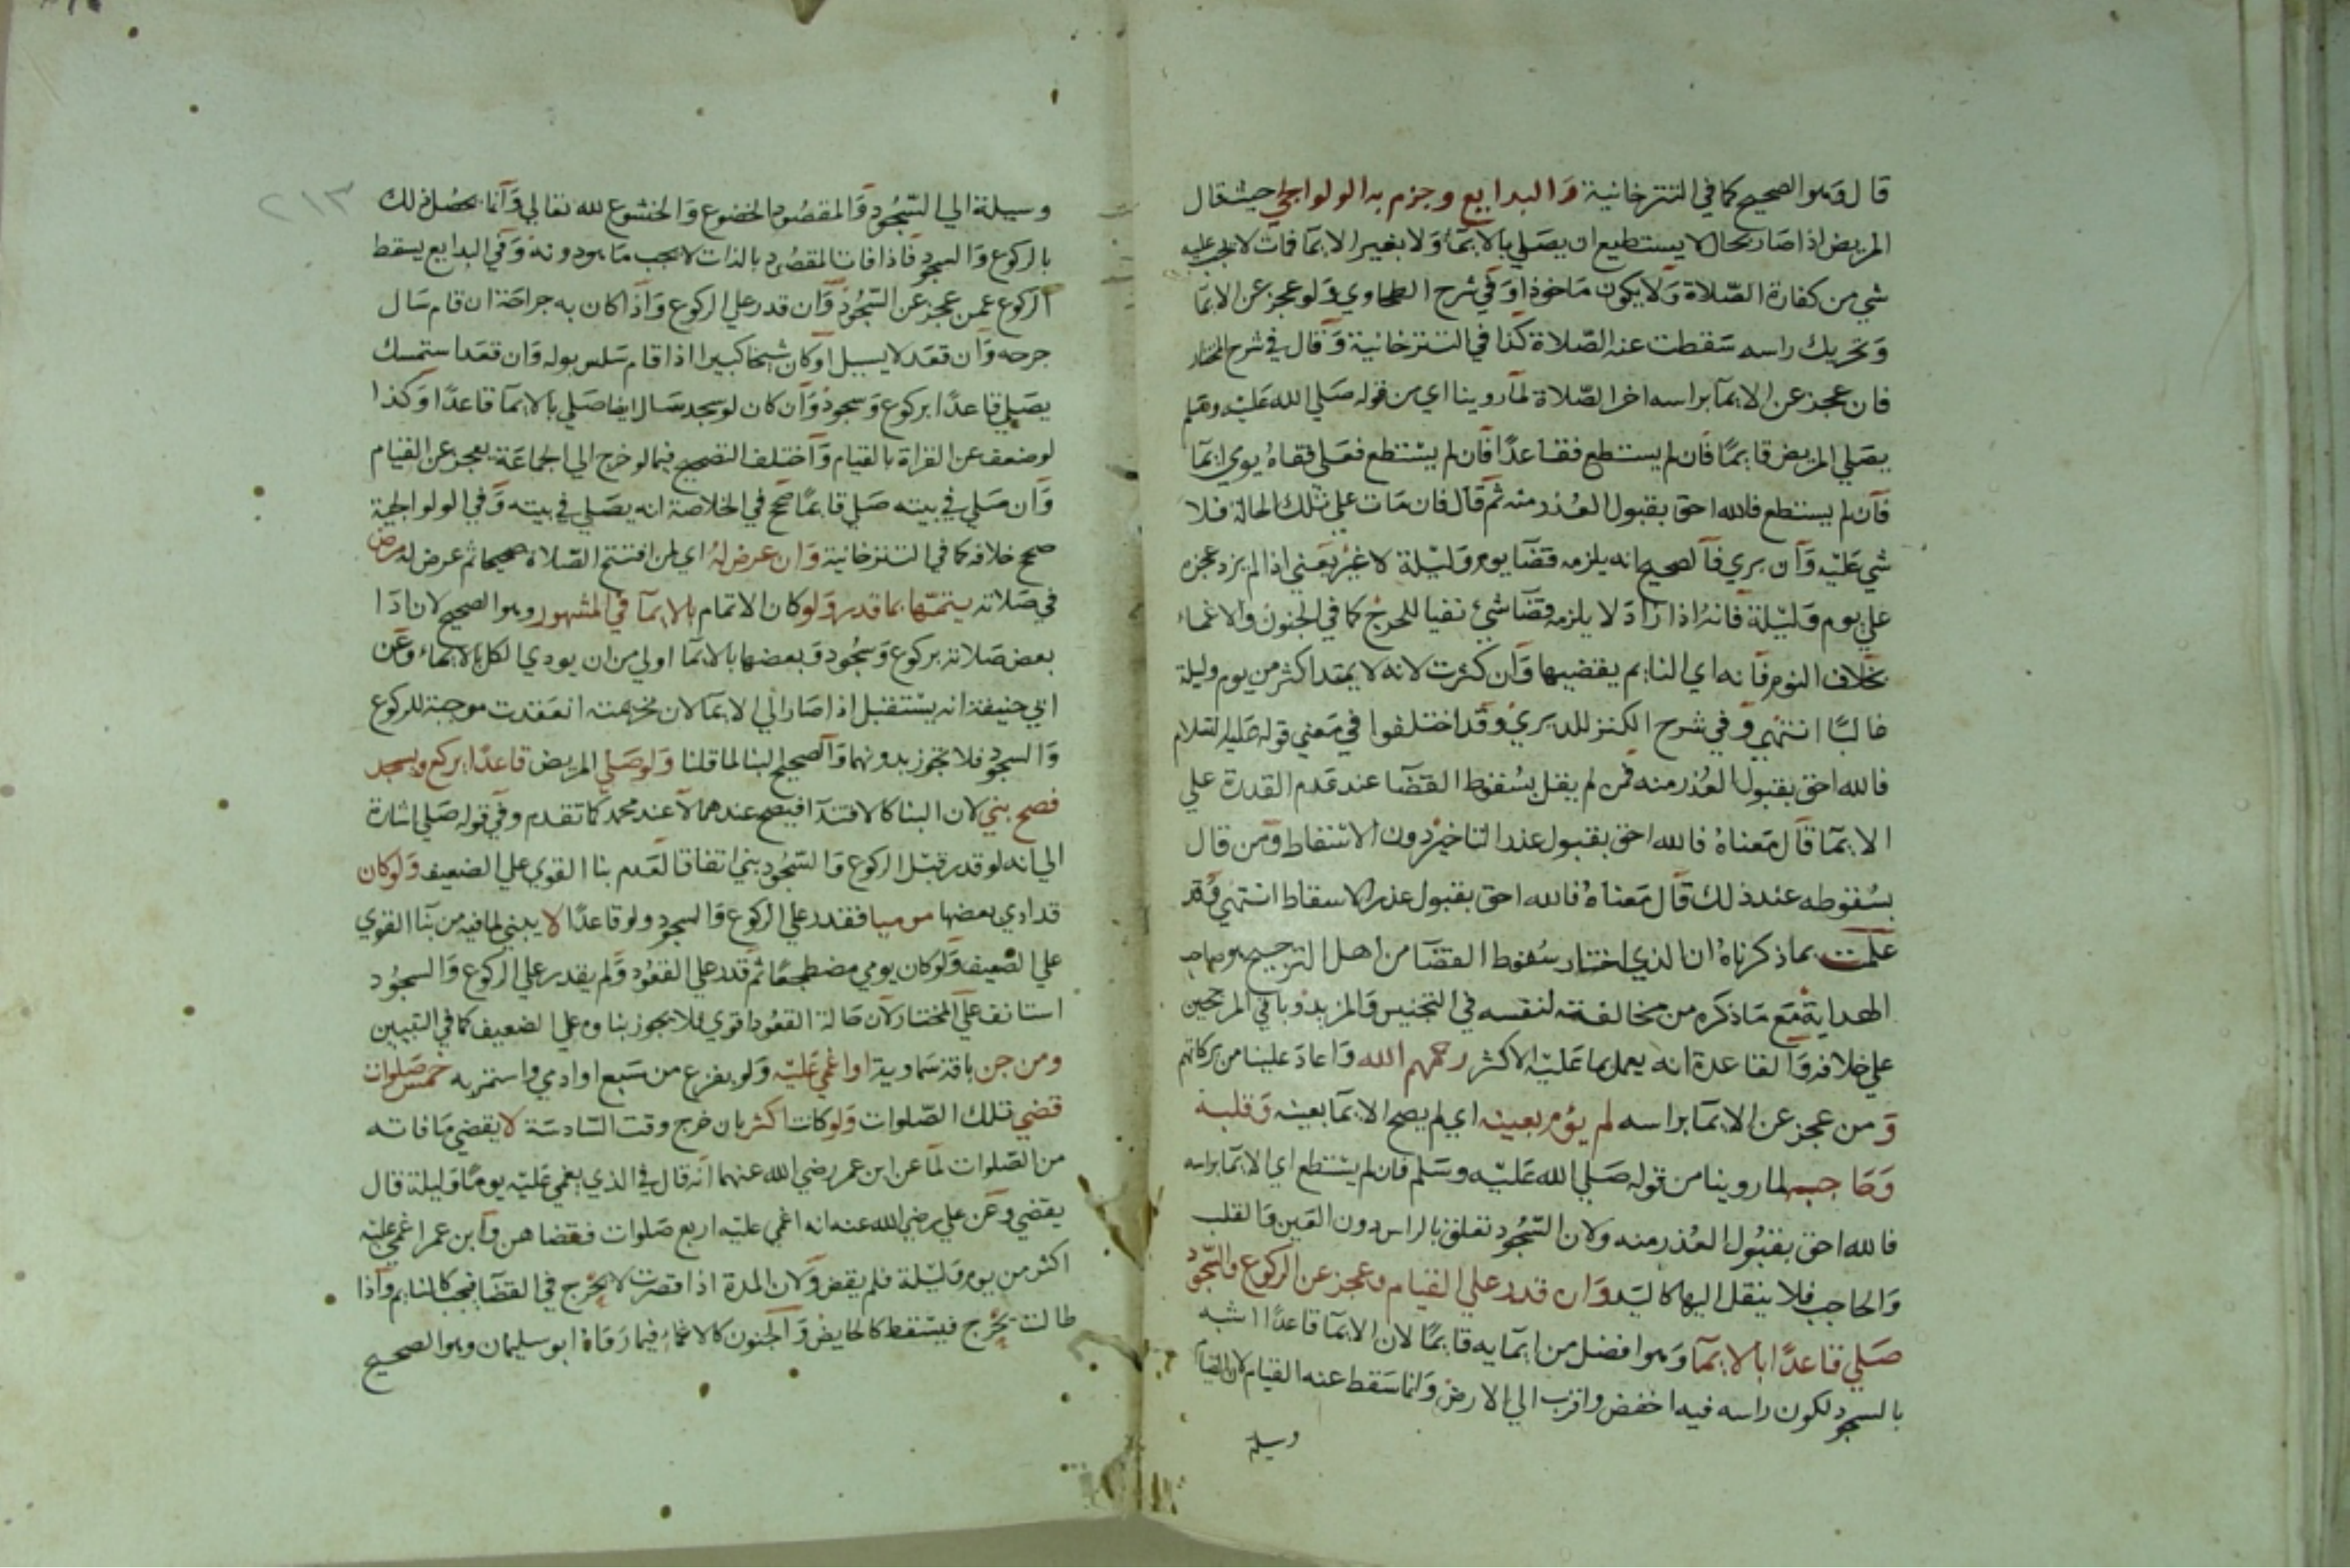 قال وهو الصحيح كما في التترخانية والبدايع وجزم به الولوالجي حيث قال
المريض اذا صار بحال لا يستطيع ان يصلي بالايمآ ولا بغير الايمآ فمات لا يجب عليه
شي من كفارة الصلاة ولا يكون ماخوذا وفي شرح الطحاوي ولو عجز عن الايمآ
وتحريك راسه سقطت عنه الصلاة كذا في التترخانية وقال في شرح المختار
فان عجز عن الايمآ براسه اخر الصلاة لما روينا اي من قوله صلي الله عليه وسلم
يصلي المريض قايمًا فان لم يستطع فقاعدًا فان لم يستطع فعلي قفاه يومي ايمآ
فان لم يستطع فالله احق بقبول العذر منه ثم قال فان مات علي تلك الحالة فلا
شي عليه وان بري فالصحيح انه يلزمه قضآ يوم وليلة لا غير يعني اذا لم يزد عجزه
علي يوم وليلة فانه اذا زاد لا يلزمه قضآ شيئ نفيا للحرج كما في الجنون والاغماء
بخلاف النوم فانه اي النايم يقضيها وان كثرت لانه لا يمتد اكثر من يوم وليلة
غالبًا انتهي وفي شرح الكنز للديري وقد اختلفوا في معني قوله عليه السلام
فالله احق بقبول العذر منه فمن لم يقل بسقوط القضآ عند عدم القدرة علي
الايمآ قال معناه فالله احق بقبول عذر التاخير دون الاسقاط ومن قال
بسقوطه عند ذلك قال معناه فالله احق بقبول عذر الاسقاط انتهي وقد
علمت بما ذكرناه ان الذي اختار سقوط القضآ من اهل الترجيح هو صاحب
الهداية مع ما ذكره من مخالفته لنفسه في التجنيس والمزيد وباقي المرجحين
علي خلافه والقاعدة انه يعمل بما عليه الاكثر رحمهم الله واعاد علينا من بركاتهم
ومن عجز عن الايمآ براسه لم يؤم بعينه اي لم يصح الايمآ بعينه وقلبه
وحاجبه لما روينا من قوله صلي الله عليه وسلم فان لم يستطع اي الايمآ براسه
فالله احق بقبول العذر منه ولان السجود تعلق بالراس دون العين والقلب
والحاجب فلا ينقل اليها كاليد وان قدر علي القيام وعجز عن الركوع والسجود
صلي قاعدًا بالايمآ وهو افضل من ايمآيه قايمًا لان الايمآ قاعدًا اشبه
بالسجود لكون راسه فيه اخفض واقرب الي الارض وانما سقط عنه القيام لان القيام
وسيلة
٢١٣
وسيلة الي السجود والمقصود الخضوع والخشوع لله تعالي وانما يحصل ذلك
بالركوع والسجود فاذا فات المقصود بالذات لا يجب ما هو دونه وفي البدايع يسقط
الركوع عمن عجز عن السجود وان قدر علي الركوع واذا كان به جراحة ان قام سال
جرحه وان قعد لا يسيل او كان شيخا كبيرا اذا قام سلس بوله وان قعد استمسك
يصلي قاعدًا بركوع وسجود وان كان لو سجد سال ايضا صلي بالايمآ قاعدًا وكذا
لو ضعف عن القراة بالقيام واختلف التصحيح فيما لو خرج الي الجماعة يعجز عن القيام
وان صلي في بيته صلي قايمًا صحح في الخلاصة انه يصلي في بيته وفي الولوالجية
صحح خلافه كما في التترخانية وان عرض له اي لمن افتتح الصلاة صحيحا ثم عرض له مرض
في صلاته يتمها بما قدر ولو كان الاتمام بالايمآ في المشهور وهو الصحيح لان ادا
بعض صلاته بركوع وسجود وبعضها بالايمآ اولي من ان يودي الكل بالايماء وعن
ابي حنيفة انه يستقبل اذا صار الي الايمآ لان تحريمته انعقدت موجبة للركوع
والسجود فلا تجوز بدونهما والصحيح البنا لما قلنا ولو صلي المريض قاعدًا يركع ويسجد
فصح بني لان البنا كالاقتدآ فيصح عندهما لا عند محمد كما تقدم وفي قوله صلي اشارة
الي انه لو قدر قبل الركوع والسجود بني اتفاقا لعدم بنا القوي علي الضعيف ولو كان
قد ادي بعضها موميا فقدر علي الركوع والسجود ولو قاعدًا لا يبني لما فيه من بنآ القوي
علي الضعيف ولو كان يومي مضطجعًا ثم قدر علي القعود ولم يقدر علي الركوع والسجود
استانف علي المختار لان حالة القعود اقوي فلا يجوز بناوه علي الضعيف كما في التبيين
ومن جن بافة سماوية او اغمي عليه ولو بفزع من سبع او ادمي واستمر به خمس صلوات
قضي تلك الصلوات ولو كانت اكثر بان خرج وقت السادسة لا يقضي ما فاته
من الصلوات لما عن ابن عمر رضي الله عنهما انه قال في الذي يغمي عليه يومًا وليلة قال
يقضي وعن علي رضي الله عنه انه اغمي عليه اربع صلوات فقضاهن وابن عمر اغمي عليه
اكثر من يوم وليلة فلم يقض ولان المدة اذا قصرت لا يحرج في القضآ فيجب كالنايم واذا
طالت يحرج فيسقط كالحايض والجنون كالاغمآ فيما رواه ابو سليمان وهو الصحيح